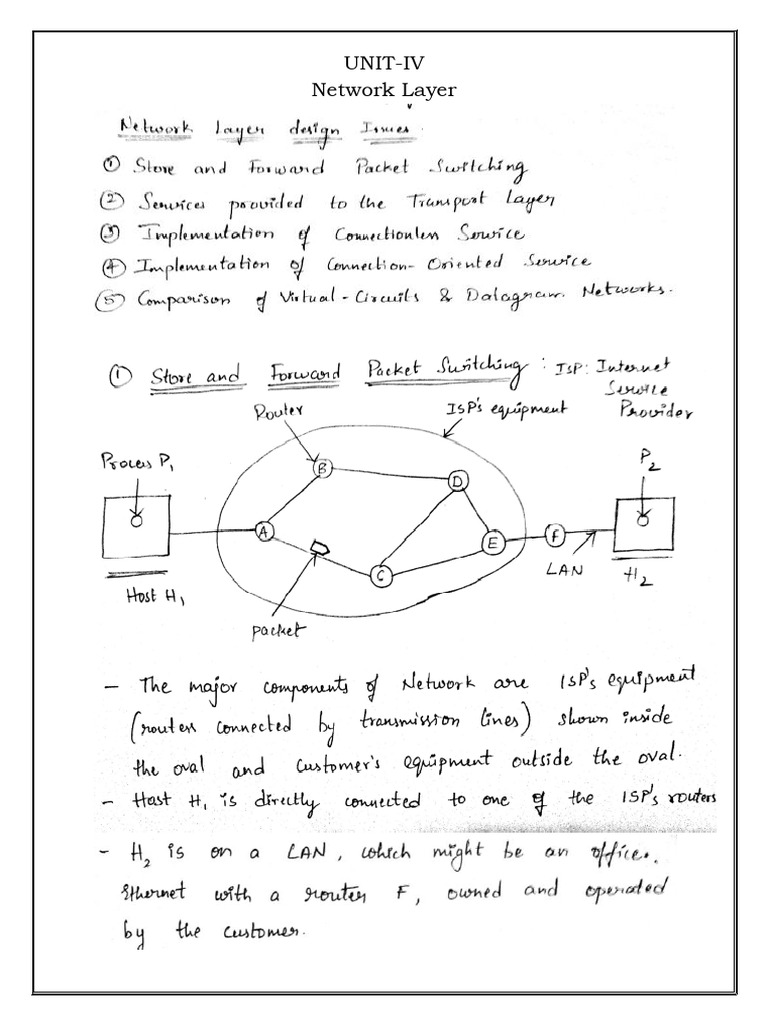 UNIT-IV
Network Layer
Network Layer design Issues.
① Store and Forward Packet Switching
② Services provided to the Transport Layer
③ Implementation of Connectionless Service
④ Implementation of Connection-Oriented Service
⑤ Comparison of Virtual-Circuits & Datagram Networks.
① Store and Forward Packet Switching: ISP: Internet
Service
Provider
Router
ISP's equipment
Process P1
P2
B
D
A
E
F
C
LAN
Host H1
H2
packet
- The major components of Network are ISP's equipment
(routers connected by transmission lines) shown inside
the oval and customer's equipment outside the oval.
- Host H1 is directly connected to one of the ISP's routers
- H2 is on a LAN, which might be an office.
Ethernet with a router F, owned and operated
by the customer.